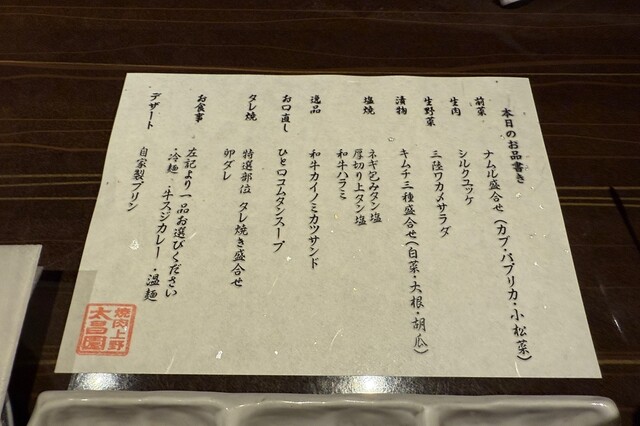 本日のお品書き
前菜 ナムル盛合せ(カブ・パプリカ・小松菜)
生肉 シルクユッケ
生野菜 三陸ワカメサラダ
漬物 キムチ三種盛合せ(白菜・大根・胡瓜)
塩焼 ネギ包みタン塩
厚切り上タン塩
和牛ハラミ
逸品 和牛カイノミカツサンド
お口直し ひと口コムタンスープ
タレ焼 特選部位 タレ焼き盛合せ
卵ダレ
お食事 左記より一品お選びください
・冷麺 ・牛スジカレー ・温麺
デザート 自家製プリン
焼肉上野
太昌園